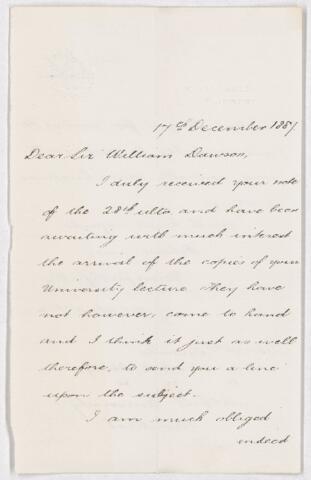 17th December 1887
Dear Sir William Dawson,
I duly received your note
of the 28th ulto and have been
awaiting with much interest
the arrival of the copies of your
University lecture. They have
not however, come to hand
and I think it just as well
therefore, to send you a line
upon the subject.
I am much obliged
indeed